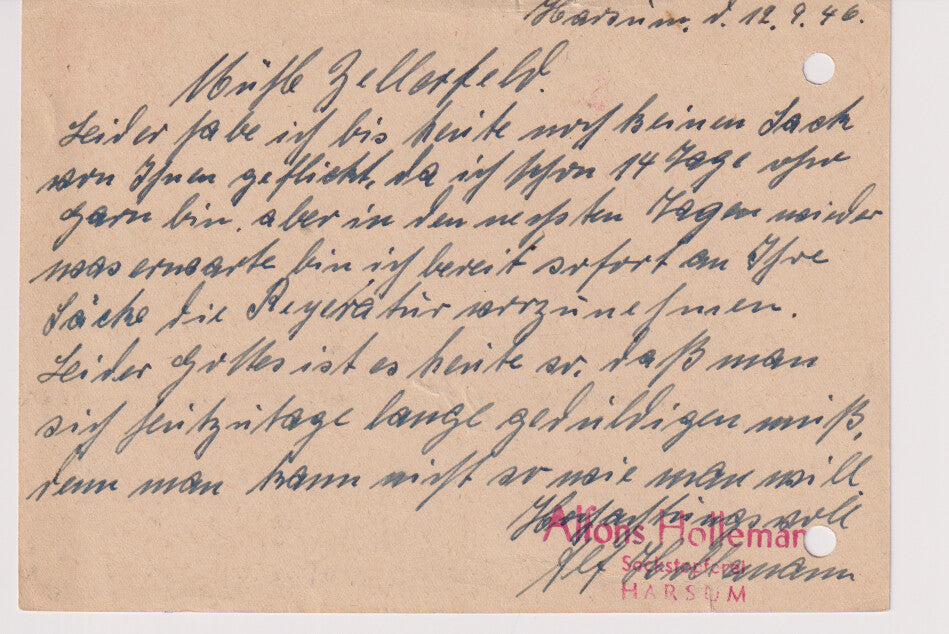 Harsum, d. 12.9.46.
Mühle Zellerfeld.
Leider habe ich bis heute noch keinen Sack
von Ihnen geflickt, da ich schon 14 Tage ohne
Garn bin, aber in den nechsten Tagen wieder
was erwarte bin ich bereit sofort an Ihre
Säcke die Reperatür vorzunehmen.
Leider Gottes ist es heute so, daß man
sich heutzutage lange gedüldigen muß,
denn man kann nicht so wie man will
Hochachtungsvoll
Alf Hollemann
Alfons Holleman
Sackstopferei
HARSUM